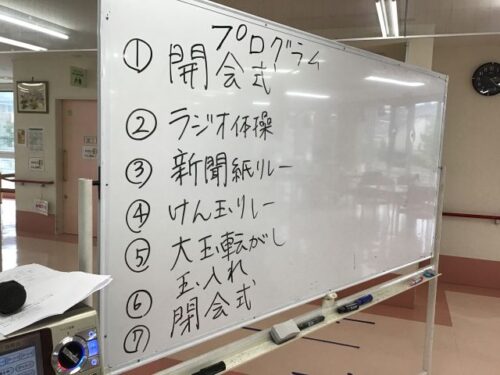 プログラム
① 開会式
② ラジオ体操
③ 新聞紙リレー
④ けん玉リレー
⑤ 大玉転がし
⑥ 玉入れ
⑦ 閉会式